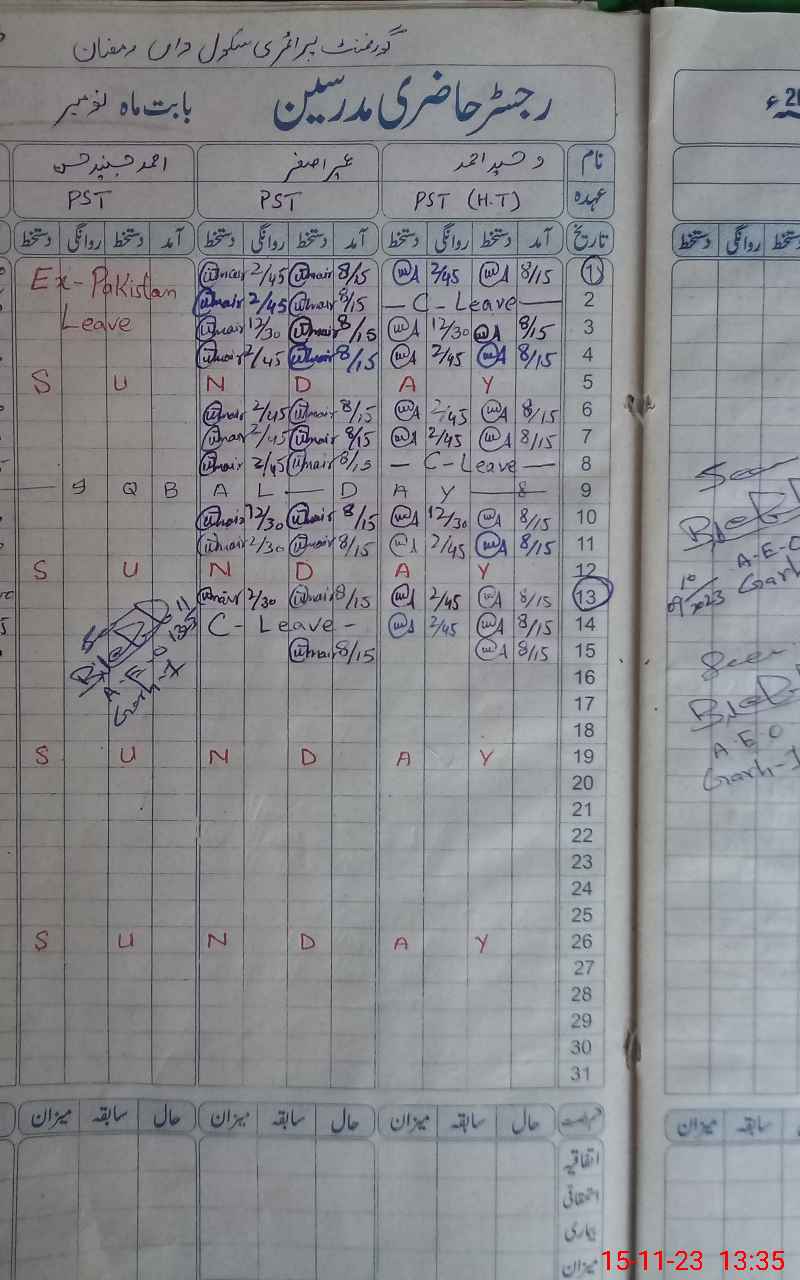 گورنمنٹ پرائمری سکول واں رمضان
رجسٹر حاضری مدرسین بابت ماہ نومبر
نام وحید احمد عمیر اصغر احمد
عہدہ PST (H.T) PST PST
تاریخ آمد دستخط روانگی دستخط آمد دستخط روانگی دستخط آمد دستخط روانگی دستخط
Ex-Pakistan Umair 2/45 Umair 8/15 WA 2/45 WA 8/15 1
Umair 2/45 Umair 8/15 — C-Leave — 2
Leave Umair 12/30 Umair 8/15 WA 12/30 WA 8/15 3
Umair 2/45 Umair 8/15 WA 2/45 WA 8/15 4
S U N D A Y 5
Umair 2/45 Umair 8/15 WA 2/45 WA 8/15 6
Umair 2/45 Umair 8/15 WA 2/45 WA 8/15 7
Umair 2/45 Umair 8/15 — C-Leave — 8
— I Q B A L — D A Y — 9
Umair 12/30 Umair 8/15 WA 12/30 WA 8/15 10
Umair 2/30 Umair 8/15 WA 2/45 WA 8/15 11
S U N D A Y 12
Umair 2/30 Umair 8/15 WA 2/45 WA 8/15 13
C-Leave - WA 2/45 WA 8/15 14
Umair 8/15 WA 8/15 15
A-E-O
Garh-I
16
17
18
S U N D A Y 19
20
21
22
23
24
25
S U N D A Y 26
27
28
29
30
31
حال سابقہ میزان حال سابقہ میزان حال سابقہ میزان
اتفاقیہ
استحقاقی
بیماری
میزان
20ء
دستخط روانگی دستخط
Seen
A-E-O
Garh-I
Seen
A-E-O
Garh-I
سابقہ میزان
15-11-23 13:35